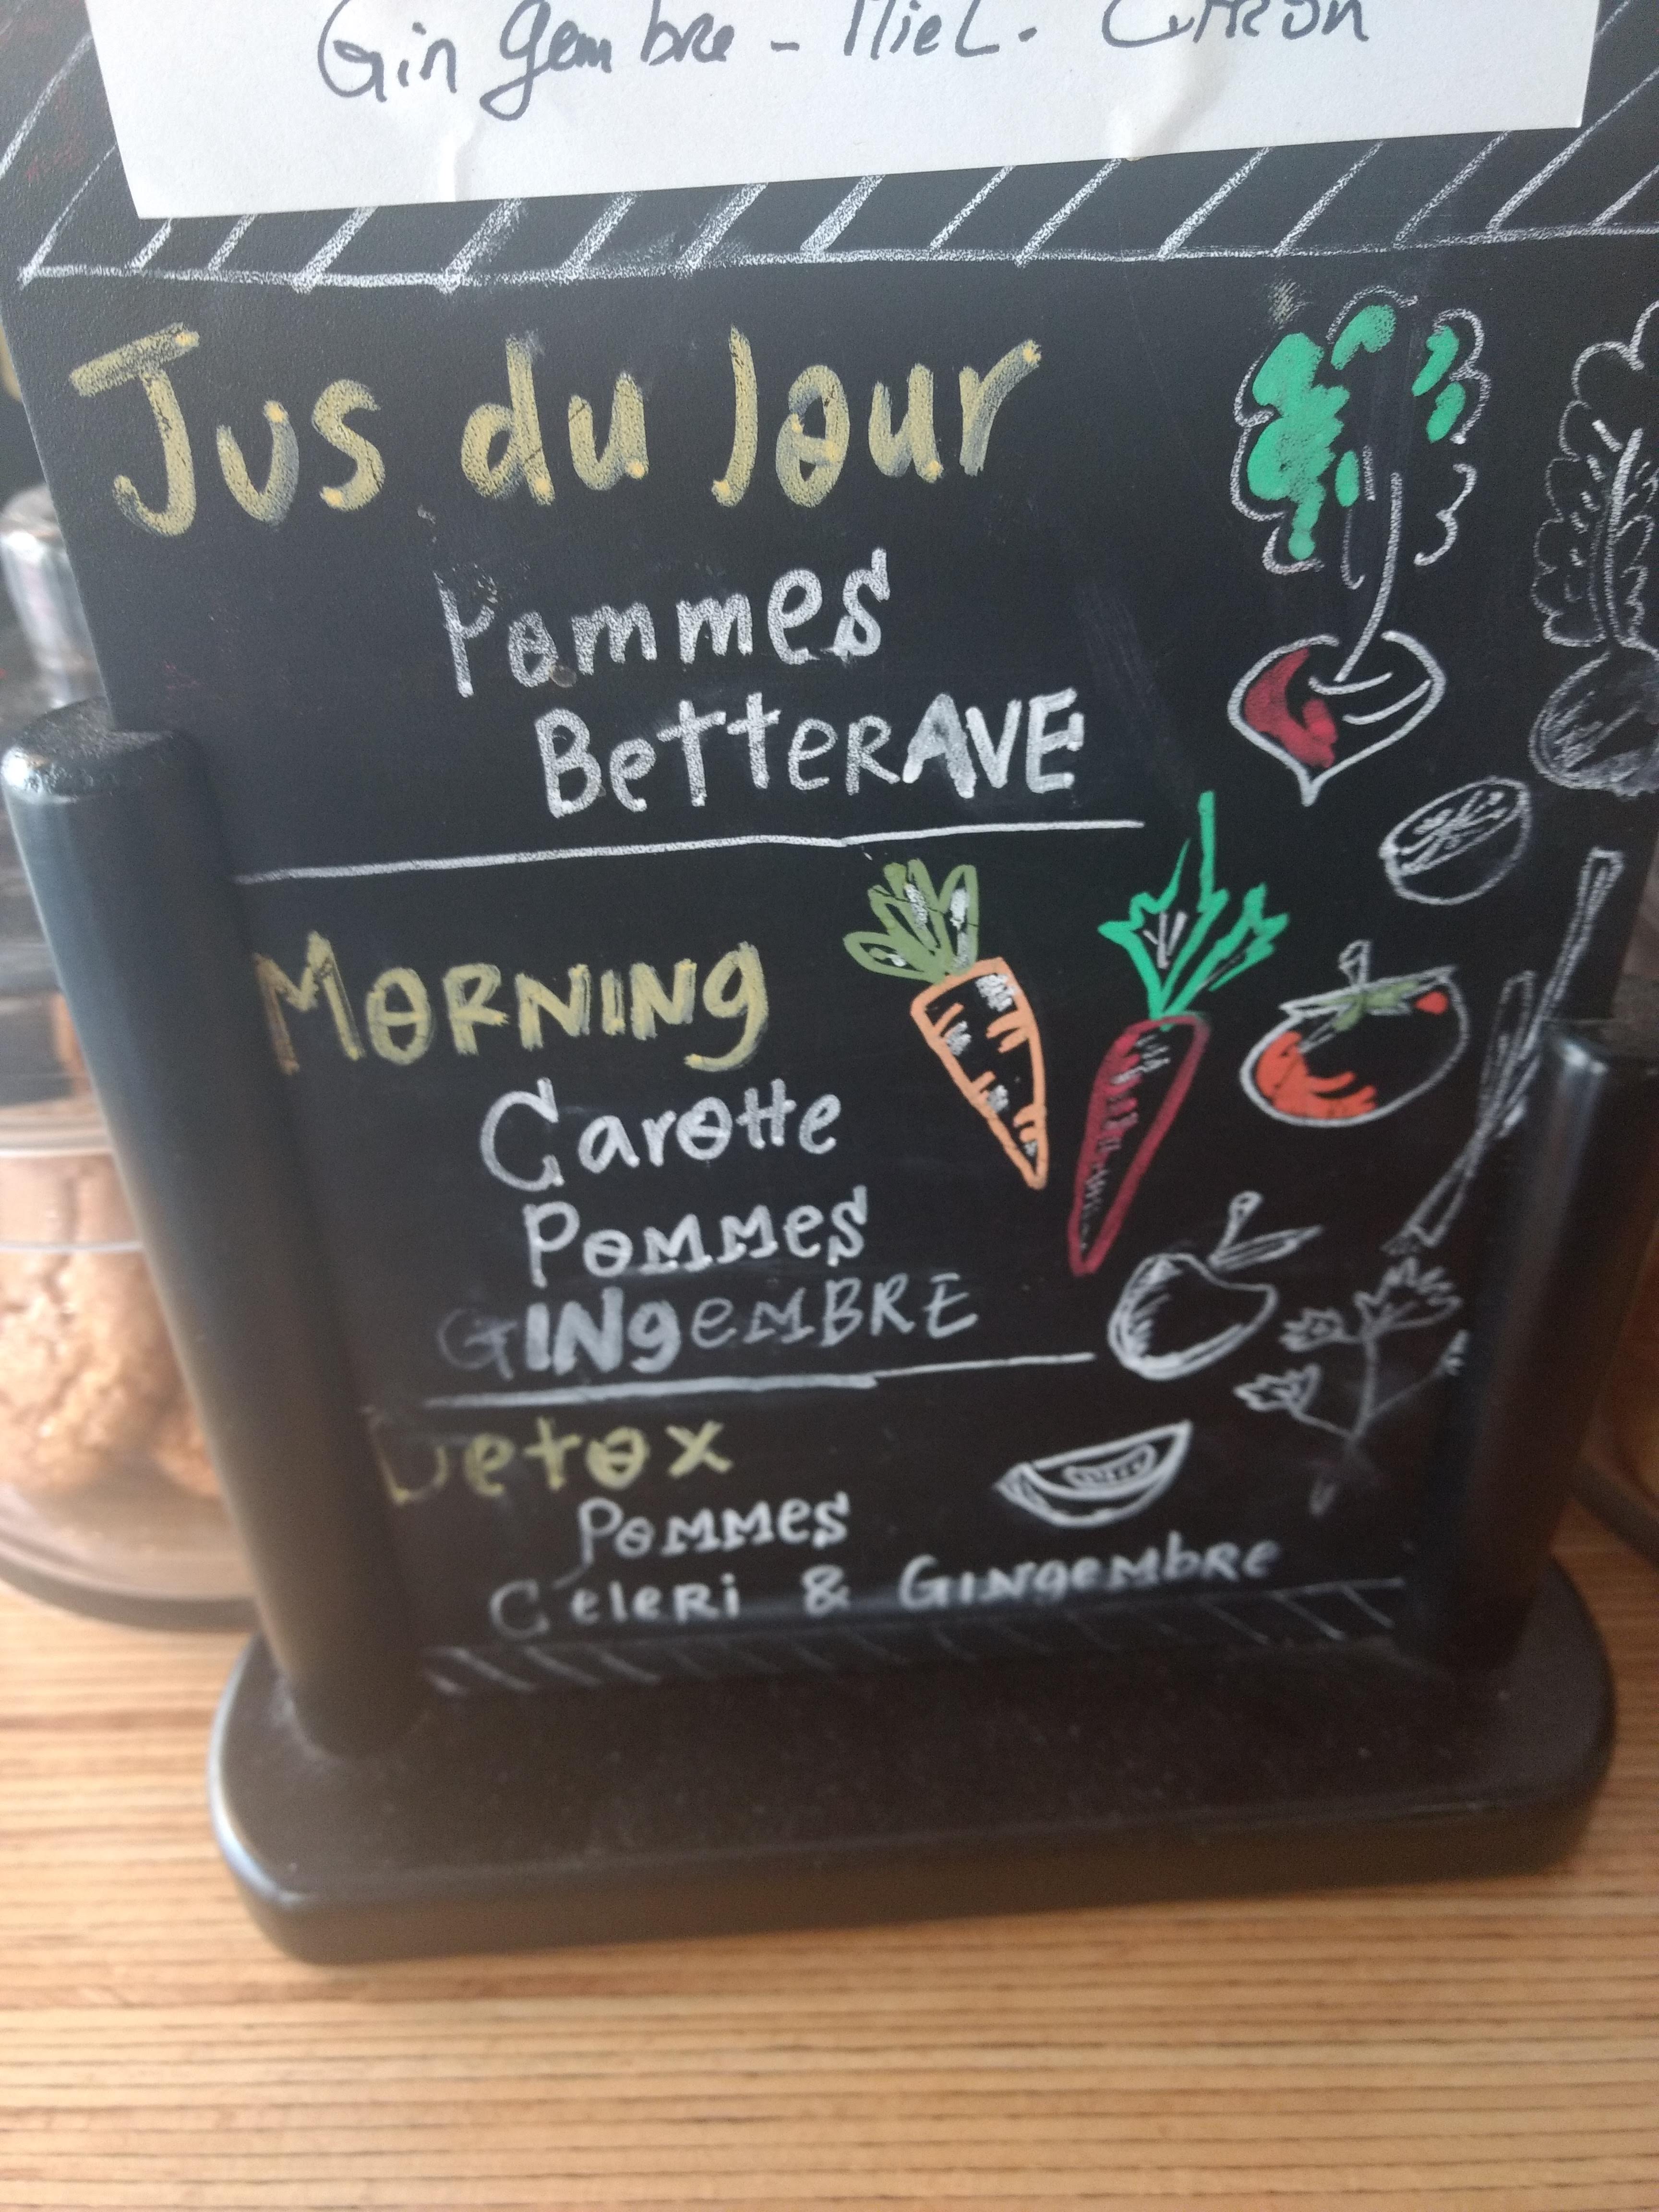 Gingembre - Miel. Citron
Jus du Jour
Pommes
BetterAVE
MORNINg
Carotte
PoMMes
GINgeMBRE
Detox
PoMMes
CeleRi & GINgeMbRe